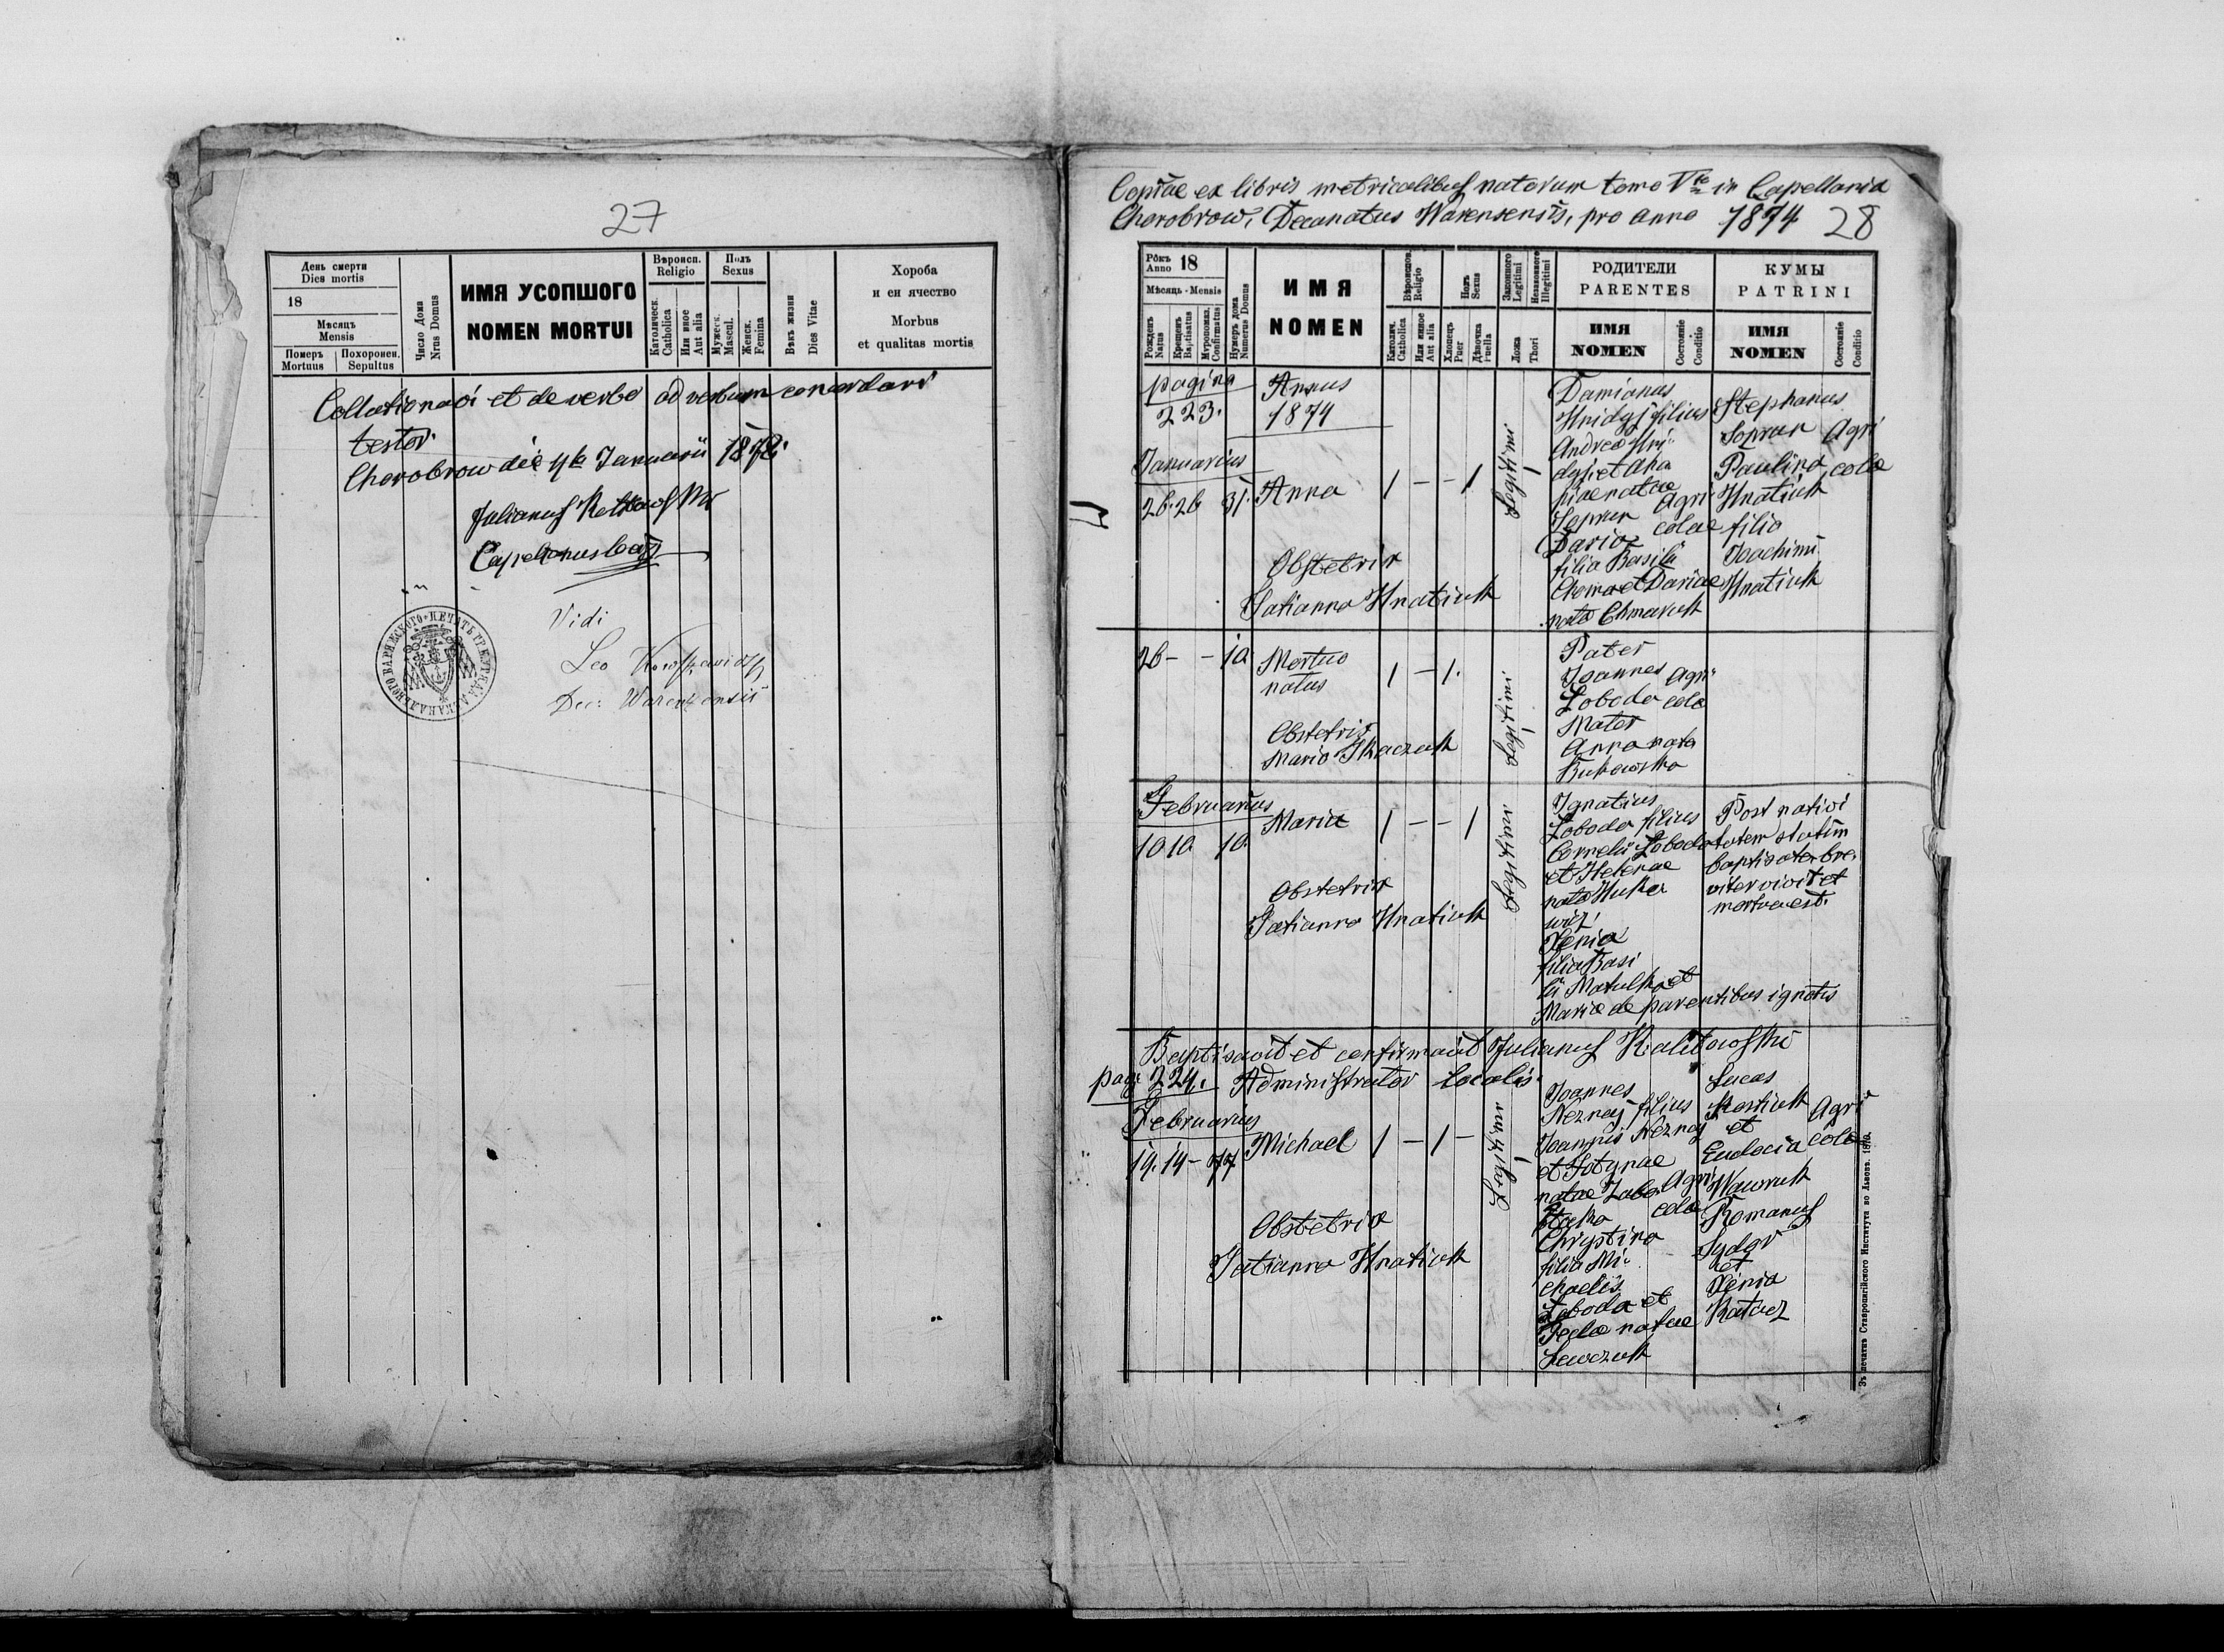 27
День смерти
Dies mortis
18
Мѣсяцъ
Mensis
Померъ
Mortuus
Похоронен.
Sepultus
Число Дома
Nrus Domus
ИМЯ УСОПШОГО
NOMEN MORTUI
Вѣроисп.
Religio
Католическ.
Catholica
Или иное
Aut alia
Полъ
Sexus
Мужеск.
Mascul.
Женск.
Femina
Вѣкъ жизни
Dies Vitae
Хороба
и еи ячество
Morbus
et qualitas mortis
Collationavi et de verbo ad verbum concordari
testor.
Chorobrow die 4ta Januarii 1878.
Julianus
Capellanus loci
Vidi
Leo
Dec: Warenzensis
Copiae ex libris metricalibus natorum tomo Vto in Capellania
Chorobrow, Decanatus Warensensis, pro anno 1874
28
Рôкъ
Anno 18
Мѣсяць - Mensis
Рожденъ
Natus
Крещенъ
Baptisatus
Мѵропомаз.
Confirmatus
Нумеръ дома
Numerus Domus
ИМЯ
NOMEN
Вѣроисповѣд.
Religio
Католич.
Catholica
Или инное
Aut alia
Полъ
Sexus
Хлопець
Puer
Дѣвочка
Puella
Законного
Legitimi
Незаконного
Illegitimi
Ложа
Thori
РОДИТЕЛИ
PARENTES
ИМЯ
NOMEN
Состояніе
Conditio
КУМЫ
PATRINI
ИМЯ
NOMEN
Состояніе
Conditio
pagina
223.
Annus
1874
Januarius
26. 26 31. Anna 1 - - 1
Legitimi
Obstetrix
Tatianna Hnatiuk
Damianus
Hnidyj filius
Andreae Hni-
dyj et Aha-
piae natae
Soprun
Agri
colae
Daria
filia Basilii
et Dariae
nata
Stephanus
Soprun
Paulina
Hnatiuk
filia
Joachimi
Hnatiuk
Agri
colae
26 - - 10 Mortuo
natus 1 - 1.
Legitimi
Obstetrix
Maria Tkaczuk
Pater
Joannes
Łoboda
Agri
cola
Mater
Anna nata
Bukowska
Februarius
10 10 10 Maria 1 - - 1
Legitimi
Obstetrix
Tatianna Hnatiuk
Ignatius
Łoboda filius
Cornelii Łoboda
et Helenae
nata
Xenia
filia Basi
lii et
Maria de parentibus ignotis
Post nativi
tatem statim
baptisata bre-
viter vixit et
mortua est.
Baptisavit et confirmavit Julianus Kalitowski
pag: 224. Administrator localis.
Februarius
14. 14 - 77 Michael 1 - 1 -
Legitimi
Obstetrix
Tatianna Hnatiuk
Joannes
Neznaj filius
Joannis Neznaj
et Fotynae
natae
Agri
cola
Chrystina
filia Mi-
chaelis
Łoboda et
natae
Lewczuk
Lucas
Kostiuk
et
Eudocia
Wawruk
Agri
colae
Romanus
Sydor
et
Xenia
Зъ печатнѣ Ставропигійского Института во Львовѣ. 1870.